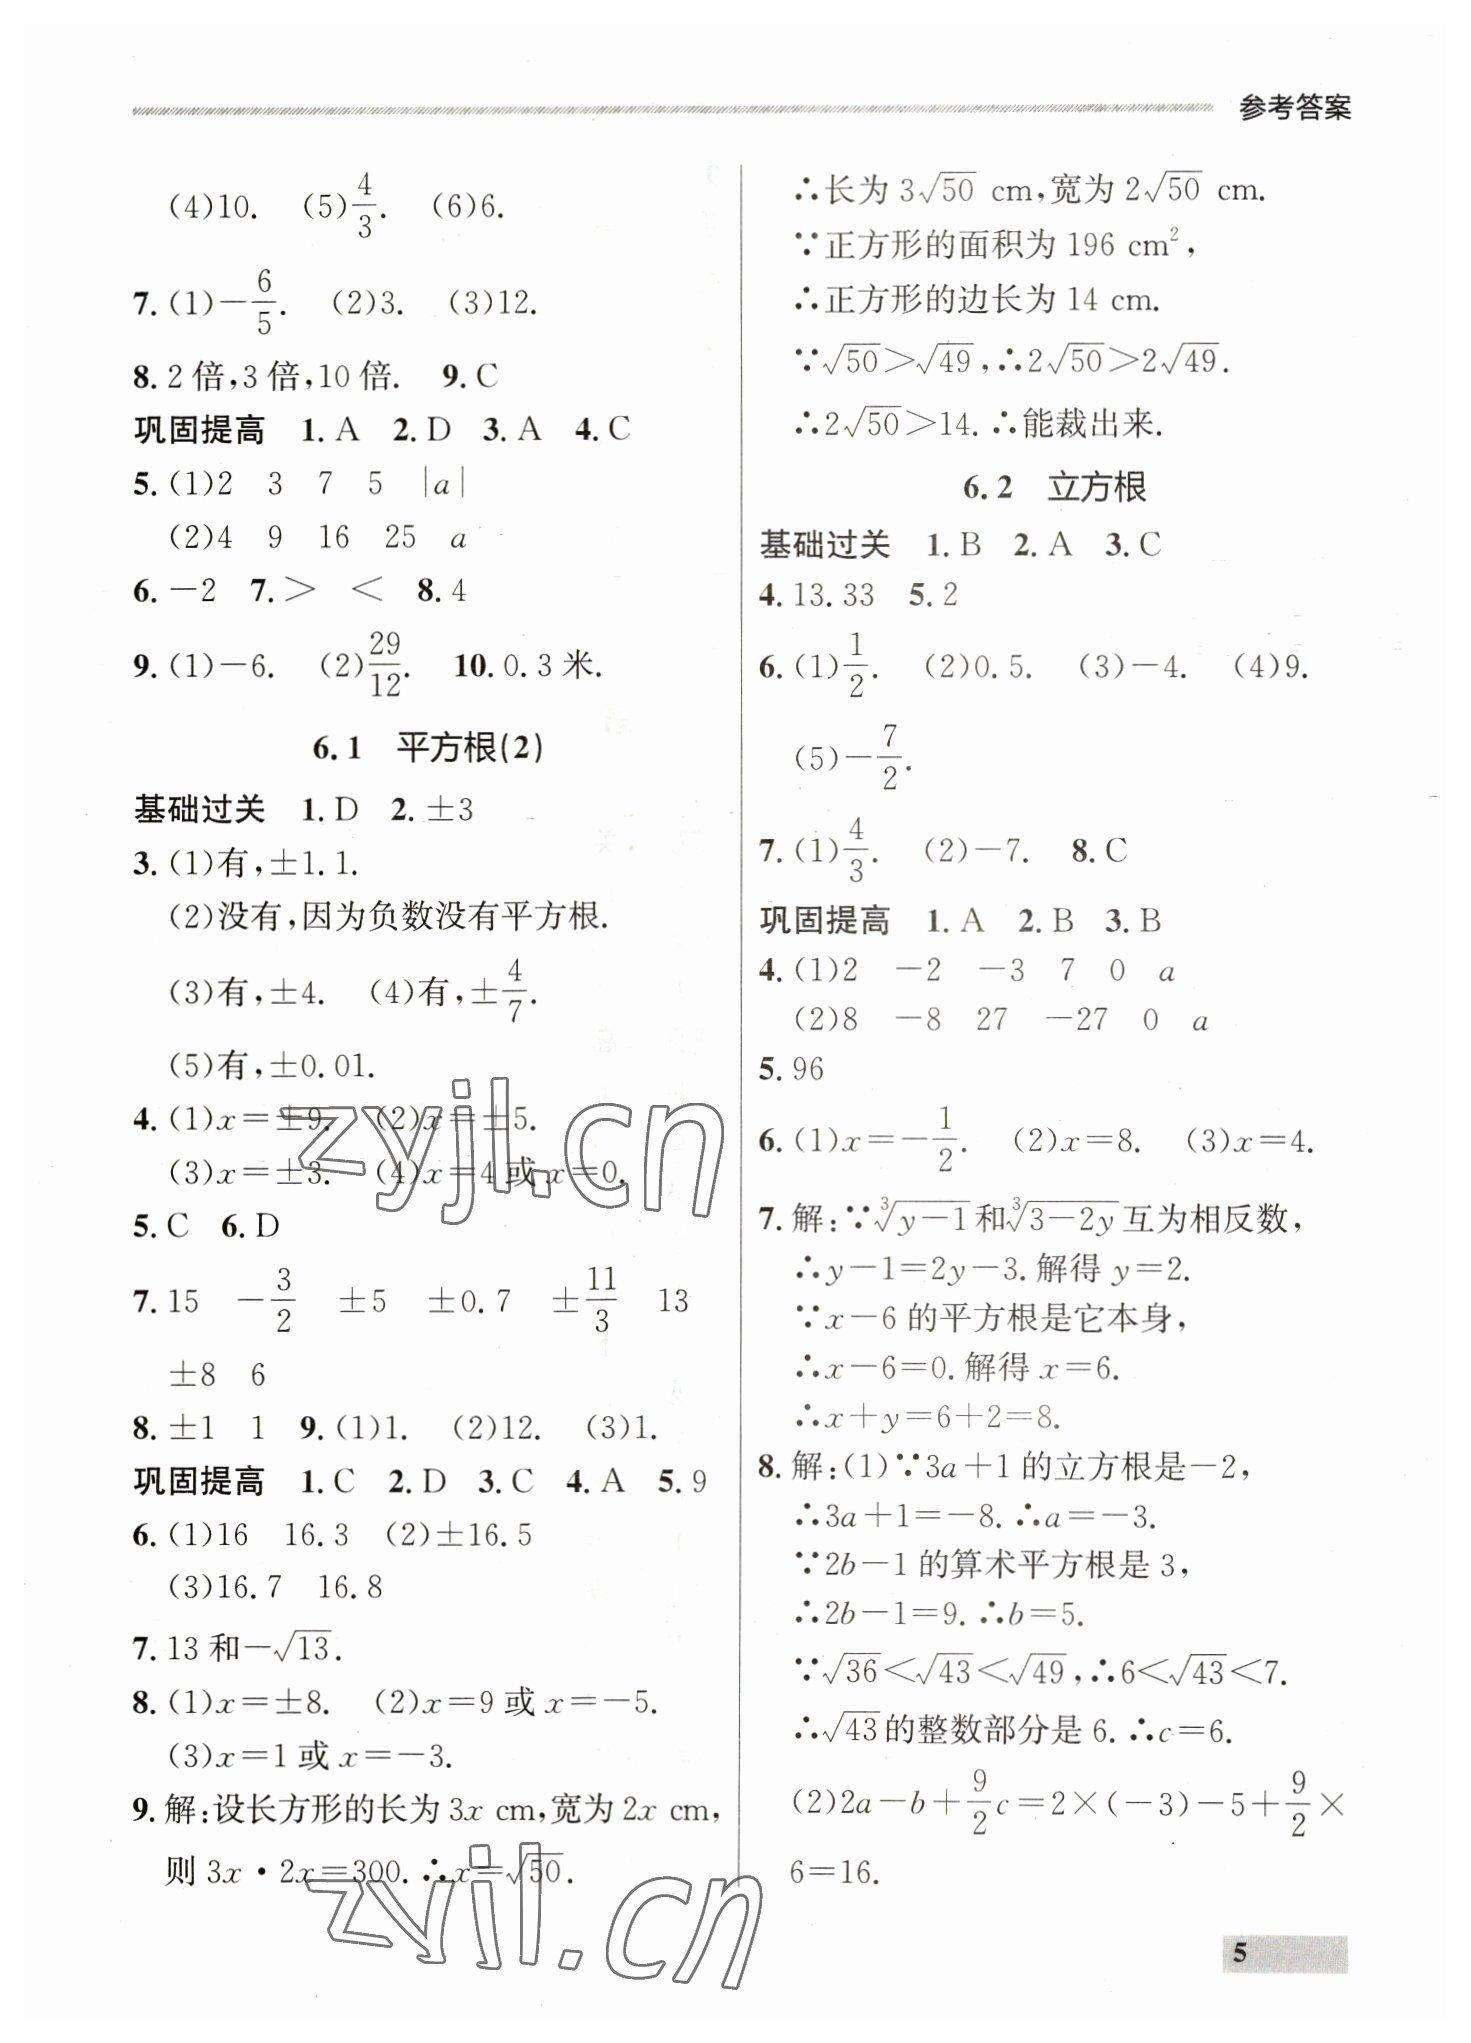 参考答案
(4)10. (5)4/3. (6)6.
7.(1)-6/5. (2)3. (3)12.
8.2倍,3倍,10倍. 9.C
巩固提高 1.A 2.D 3.A 4.C
5.(1)2 3 7 5 |a|
(2)4 9 16 25 a
6.-2 7.> < 8.4
9.(1)-6. (2)29/12. 10.0.3米.
6.1 平方根(2)
基础过关 1.D 2.±3
3.(1)有,±1.1.
(2)没有,因为负数没有平方根.
(3)有,±4. (4)有,±4/7.
(5)有,±0.01.
4.(1)x=±9. (2)x=±5.
(3)x=±3. (4)x=4或x=0.
5.C 6.D
7.15 -3/2 ±5 ±0.7 ±11/3 13
±8 6
8.±1 1 9.(1)1. (2)12. (3)1.
巩固提高 1.C 2.D 3.C 4.A 5.9
6.(1)16 16.3 (2)±16.5
(3)16.7 16.8
7.13和-√13.
8.(1)x=±8. (2)x=9或x=-5.
(3)x=1或x=-3.
9.解:设长方形的长为3x cm,宽为2x cm,
则3x·2x=300.∴x=√50.
∴长为3√50 cm,宽为2√50 cm.
∵正方形的面积为196 cm²,
∴正方形的边长为14 cm.
∵√50>√49,∴2√50>2√49.
∴2√50>14.∴能裁出来.
6.2 立方根
基础过关 1.B 2.A 3.C
4.13.33 5.2
6.(1)1/2. (2)0.5. (3)-4. (4)9.
(5)-7/2.
7.(1)4/3. (2)-7. 8.C
巩固提高 1.A 2.B 3.B
4.(1)2 -2 -3 7 0 a
(2)8 -8 27 -27 0 a
5.96
6.(1)x=-1/2. (2)x=8. (3)x=4.
7.解:∵∛(y-1)和∛(3-2y)互为相反数,
∴y-1=2y-3.解得y=2.
∵x-6的平方根是它本身,
∴x-6=0.解得x=6.
∴x+y=6+2=8.
8.解:(1)∵3a+1的立方根是-2,
∴3a+1=-8.∴a=-3.
∵2b-1的算术平方根是3,
∴2b-1=9.∴b=5.
∵√36<√43<√49,∴6<√43<7.
∴√43的整数部分是6.∴c=6.
(2)2a-b+9/2c=2×(-3)-5+9/2×
6=16.
5
zyjl.cn
zyjl.cn